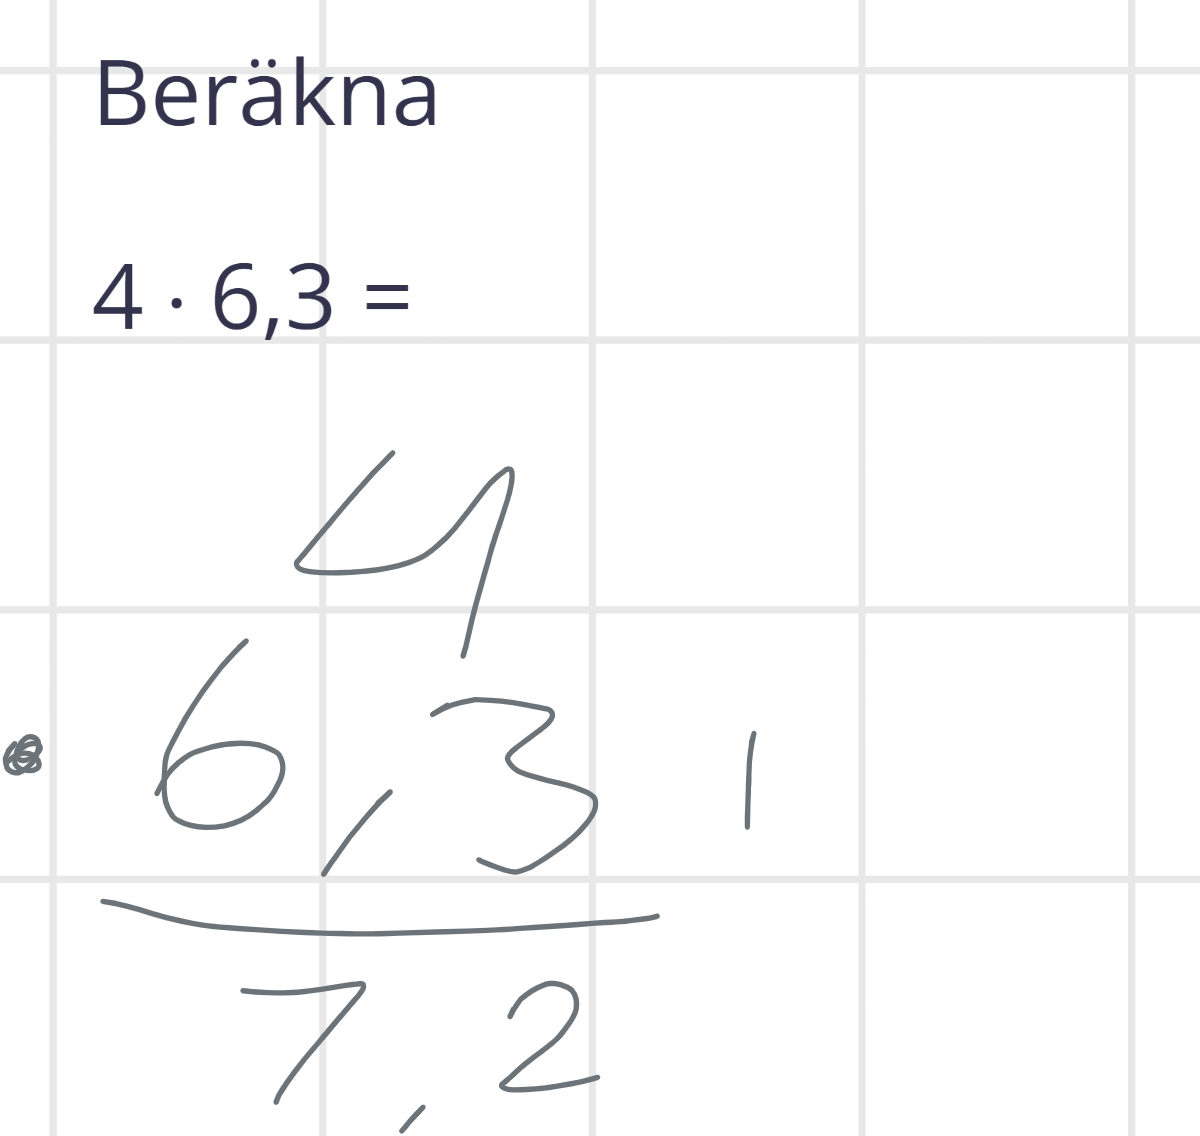 Beräkna
4 · 6,3 =
4
· 6,3 1
7,2